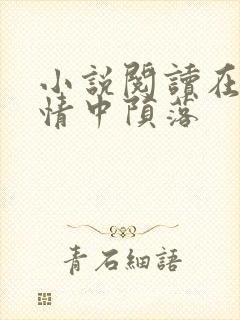 小說閱讀在
情中隕落
青石細語